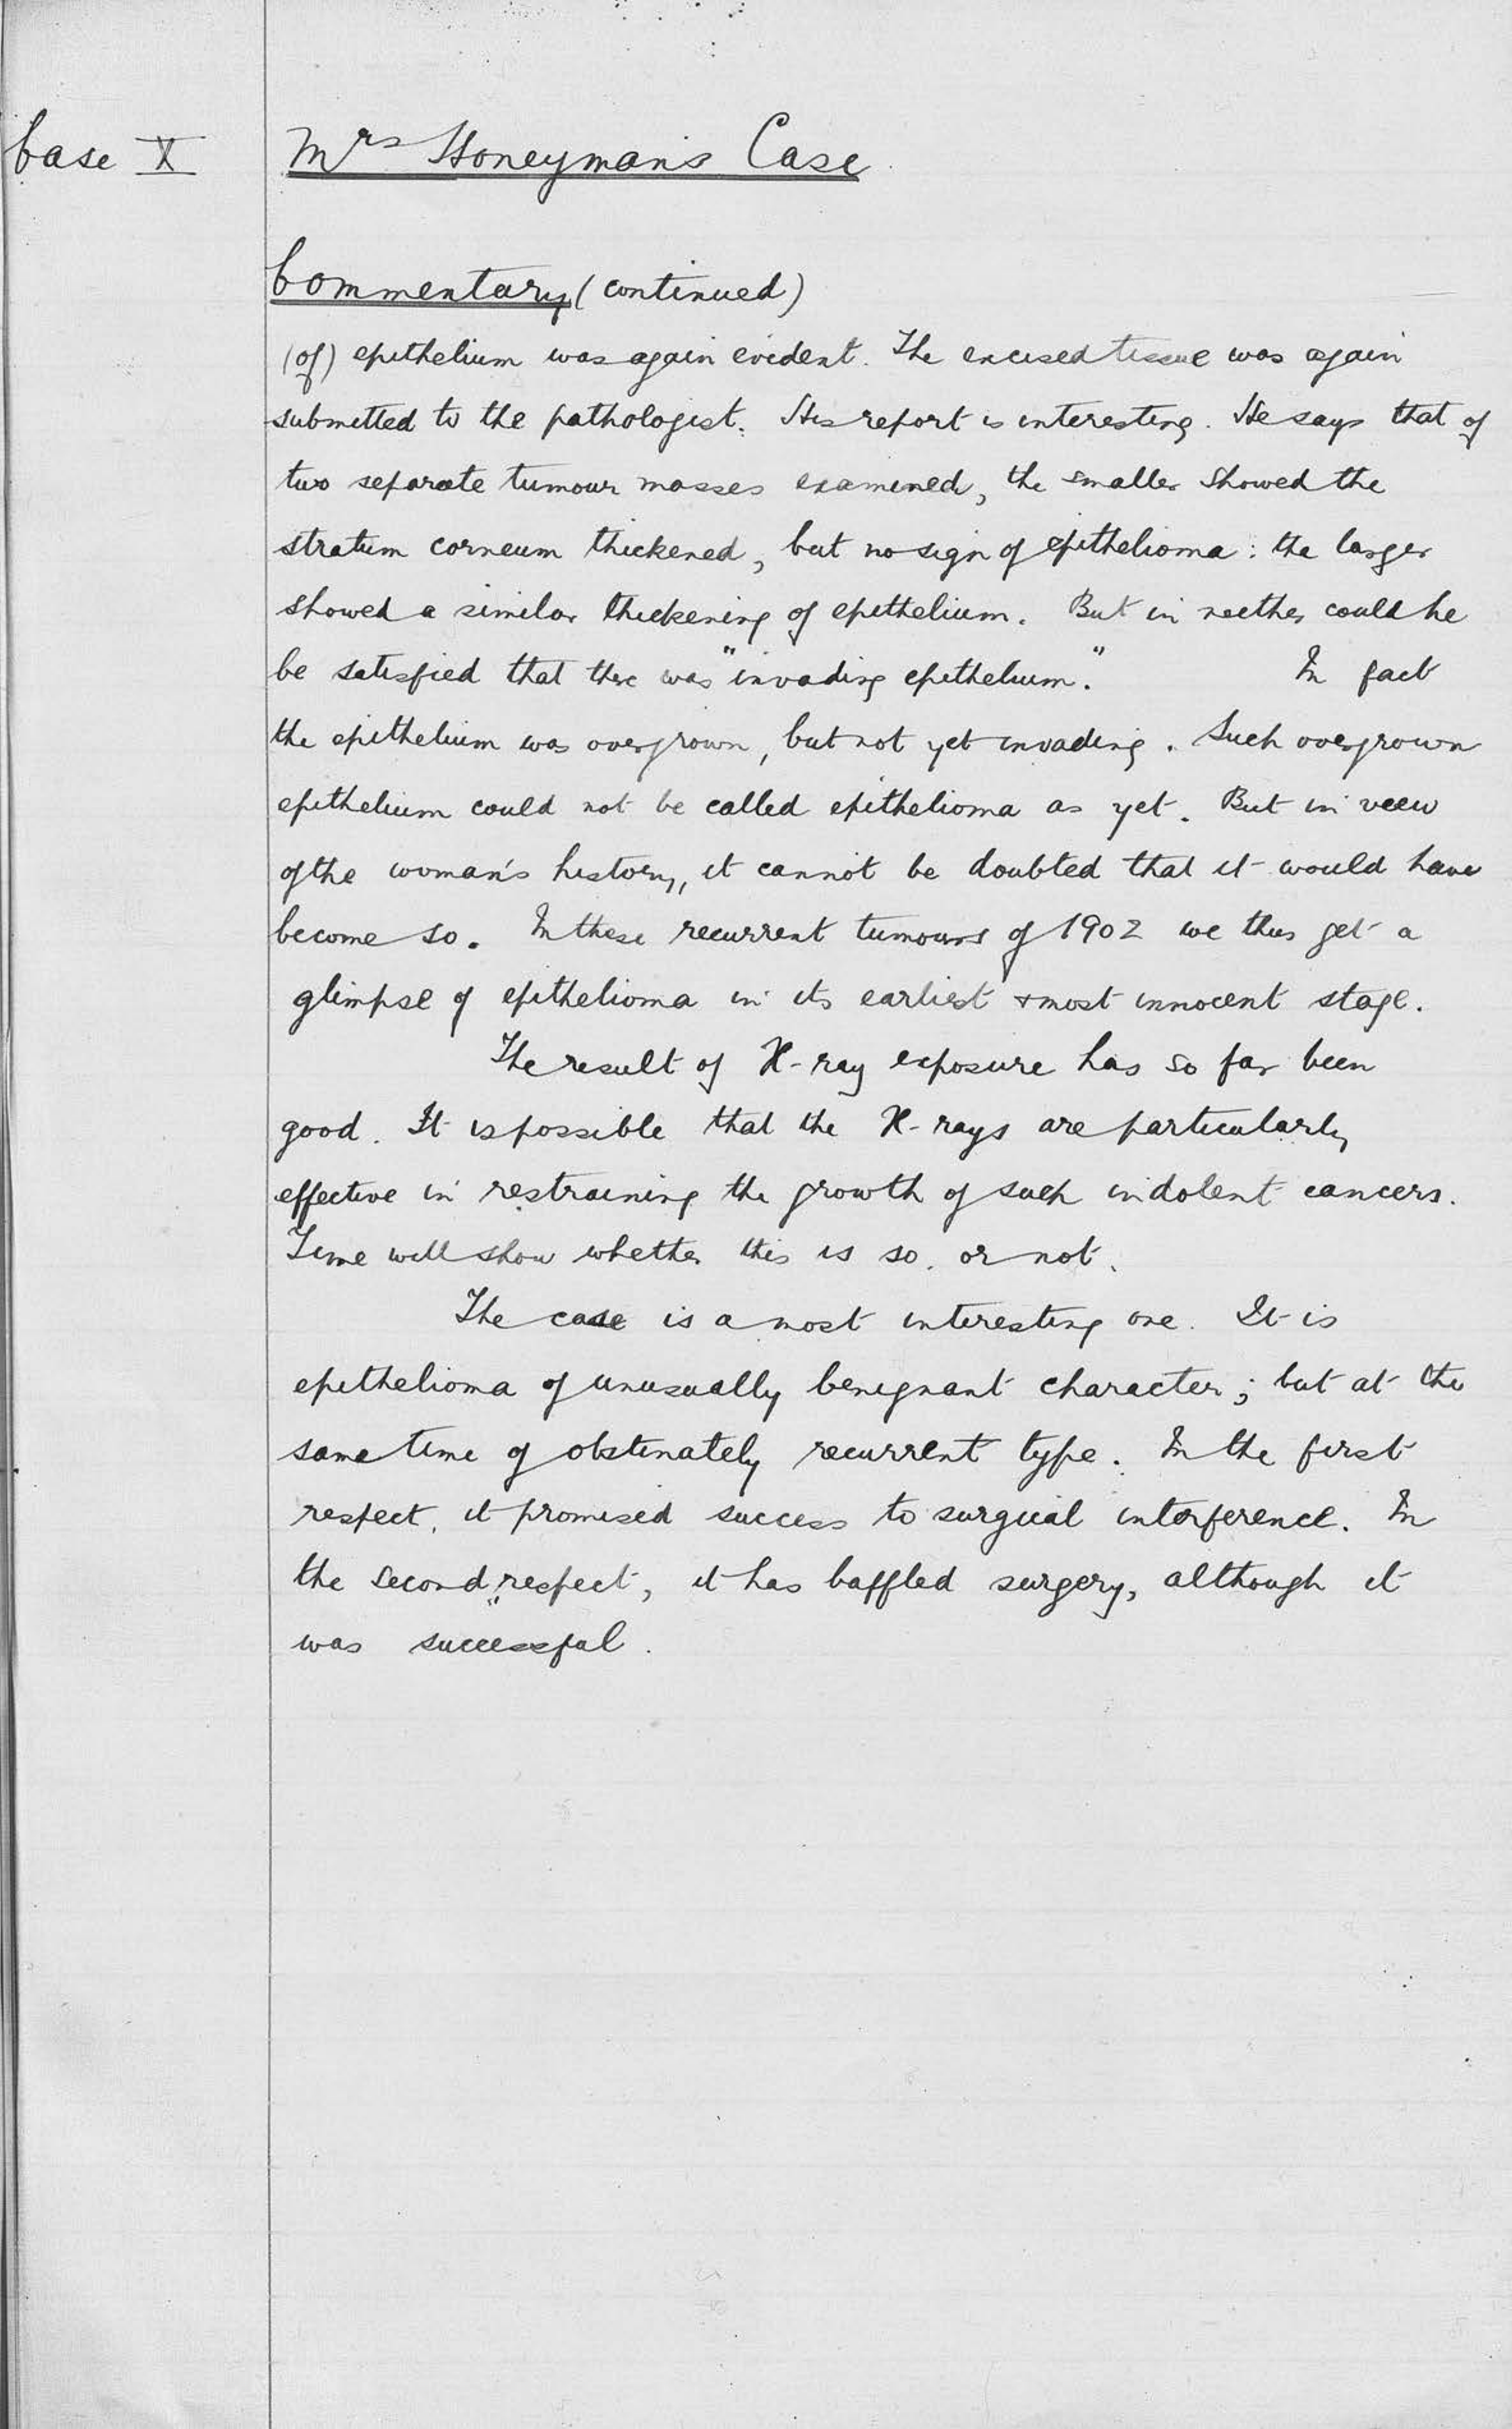 Case X
Mrs Honeyman's Case
Commentary (continued)
(of) epithelium was again evident. The excised tissue was again
submitted to the pathologist. His report is interesting. He says that of
two separate tumour masses examined, the smaller showed the
stratum corneum thickened, but no sign of epithelioma: the larger
showed a similar thickening of epithelium. But in neither could he
be satisfied that there was "invading epithelium." In fact
the epithelium was overgrown, but not yet invading. Such overgrown
epithelium could not be called epithelioma as yet. But in view
of the woman's history, it cannot be doubted that it would have
become so. In these recurrent tumours of 1902 we thus get a
glimpse of epithelioma in its earliest & most innocent stage.
The result of X-ray exposure has so far been
good. It is possible that the X-rays are particularly
effective in restraining the growth of such indolent cancers.
Time will show whether this is so. or not.
The case is a most interesting one. It is
epithelioma of unusually benignant character; but at the
same time of obstinately recurrent type. In the first
respect, it promised success to surgical interference. In
the second respect, it has baffled surgery, although it
was successful.